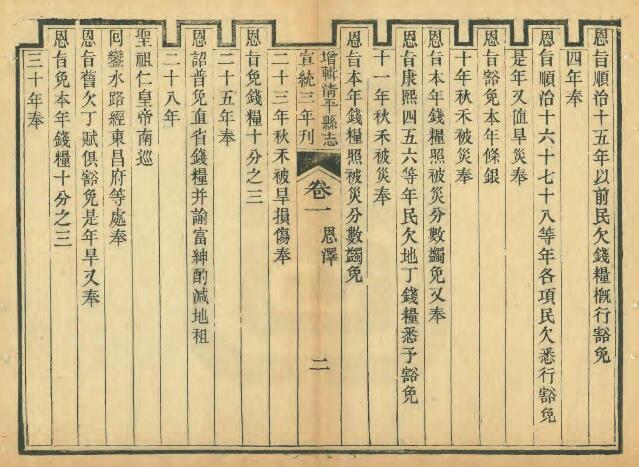 恩旨順治十五年以前民欠錢糧概行豁免
四年奉
恩旨順治十六十七十八等年各項民欠悉行豁免
是年又値旱災奉
恩旨豁免本年條銀
十年秋禾被災奉
恩旨本年錢糧照被災分數蠲免又奉
恩旨康熙四五六等年民欠地丁錢糧悉予豁免
十一年秋禾被災奉
恩旨本年錢糧照被災分數蠲免
增輯清平縣志
宣統三年刊
卷一
恩澤
二
二十三年秋禾被旱損傷奉
恩旨免錢糧十分之三
二十五年奉
恩詔普免直省錢糧并諭富紳酌減地租
二十八年
聖祖仁皇帝南巡
回鑾水路經東昌府等處奉
恩旨舊欠丁賦俱豁免是年旱又奉
恩旨免本年錢糧十分之三
三十年奉